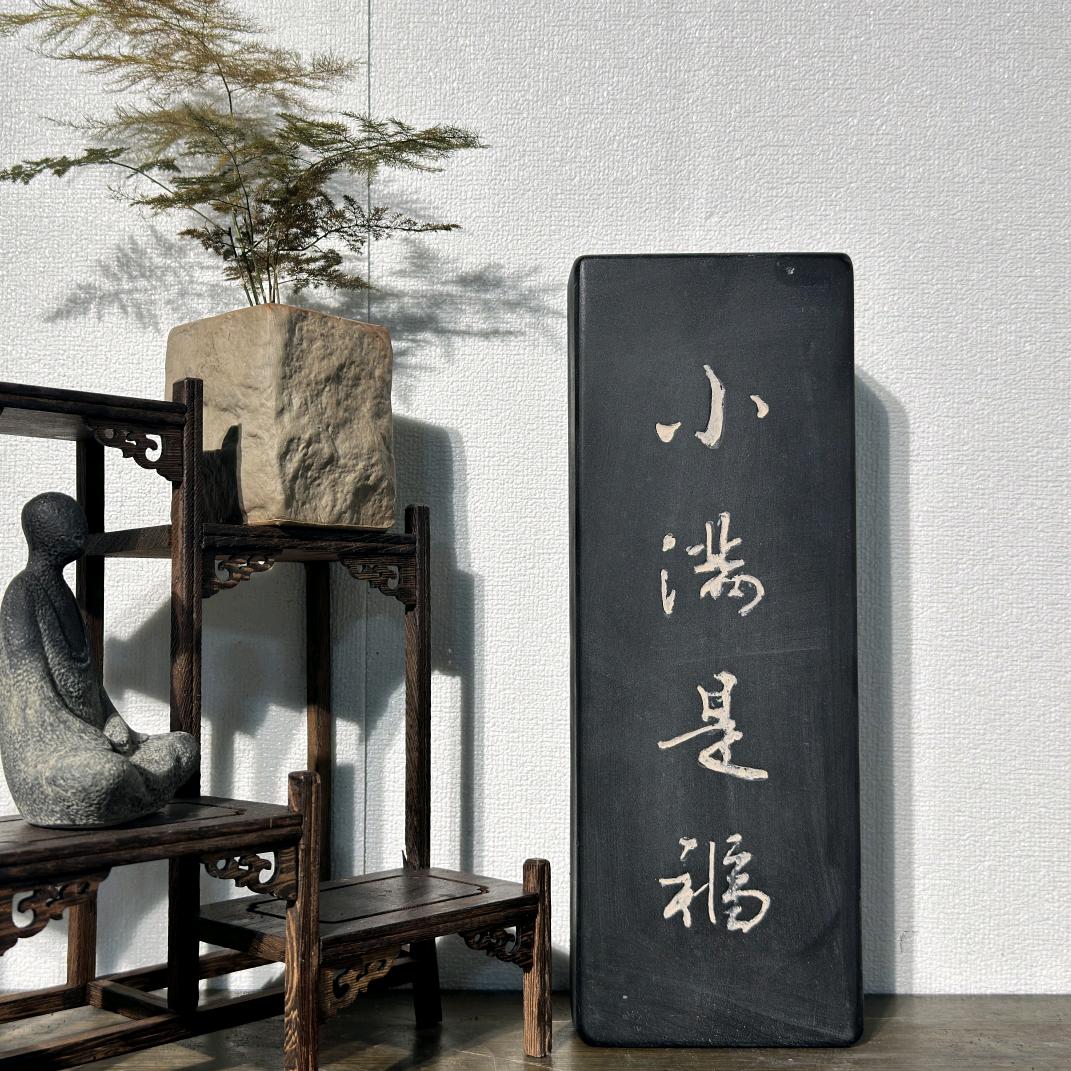 小满是福